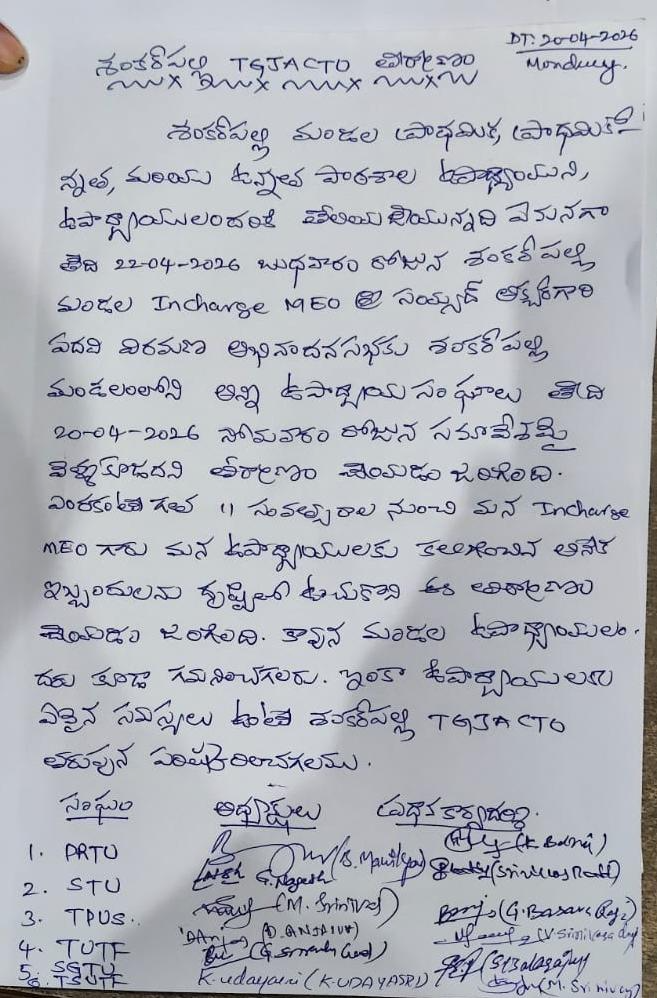 DT: 20-04-2026
Monday.
శంకర్‌పల్లి TGJACTO తీర్మాణం
శంకర్‌పల్లి మండల ప్రాథమిక, ప్రాథమికో
న్నత, మరియు ఉన్నత పాఠశాల ఉపాధ్యాయుని,
ఉపాధ్యాయులందరికి తెలియజేయునది ఏమనగా
తేది 22-04-2026 బుధవారం రోజున శంకర్‌పల్లి
మండల Incharge MEO శ్రీ సయ్యద్ అక్బర్‌గారి
పదవి విరమణ అభినందనసభకు శంకర్‌పల్లి
మండలంలోని అన్ని ఉపాధ్యాయ సంఘాలు తేది
20-04-2026 సోమవారం రోజున సమావేశమై
వెళ్ళకూడదని తీర్మాణం చేయడం జరిగింది.
ఎందకంటే గత 11 సంవత్సరాల నుంచి మన Incharge
MEO గారు మన ఉపాధ్యాయులకు కలిగించిన అనేక
ఇబ్బందులను దృష్టిలో ఉంచుకొని ఈ తీర్మాణం
చేయడం జరిగింది. కావున మండల ఉపాధ్యాయులం.
దరు కూడా గమనించగలరు. ఇంకా ఉపాధ్యాయులకు
ఏమైన సమస్యలు ఉంటే శంకర్‌పల్లి TGJACTO
తరుపున పరిష్కరించగలము.
సంఘం అధ్యక్షులు ప్రధానకార్యదర్శి.
1. PRTU (K. )
2. STU G. Nagesh (Srinivas Reddy)
3. TPUS. (M. Srinivas) (G. Basava Raj)
4. TUTF (D. ANJAIAH)
5. SGTU
6. TSUTF K. Udayasri (K. UDAYASRI) (M. Srinivas)